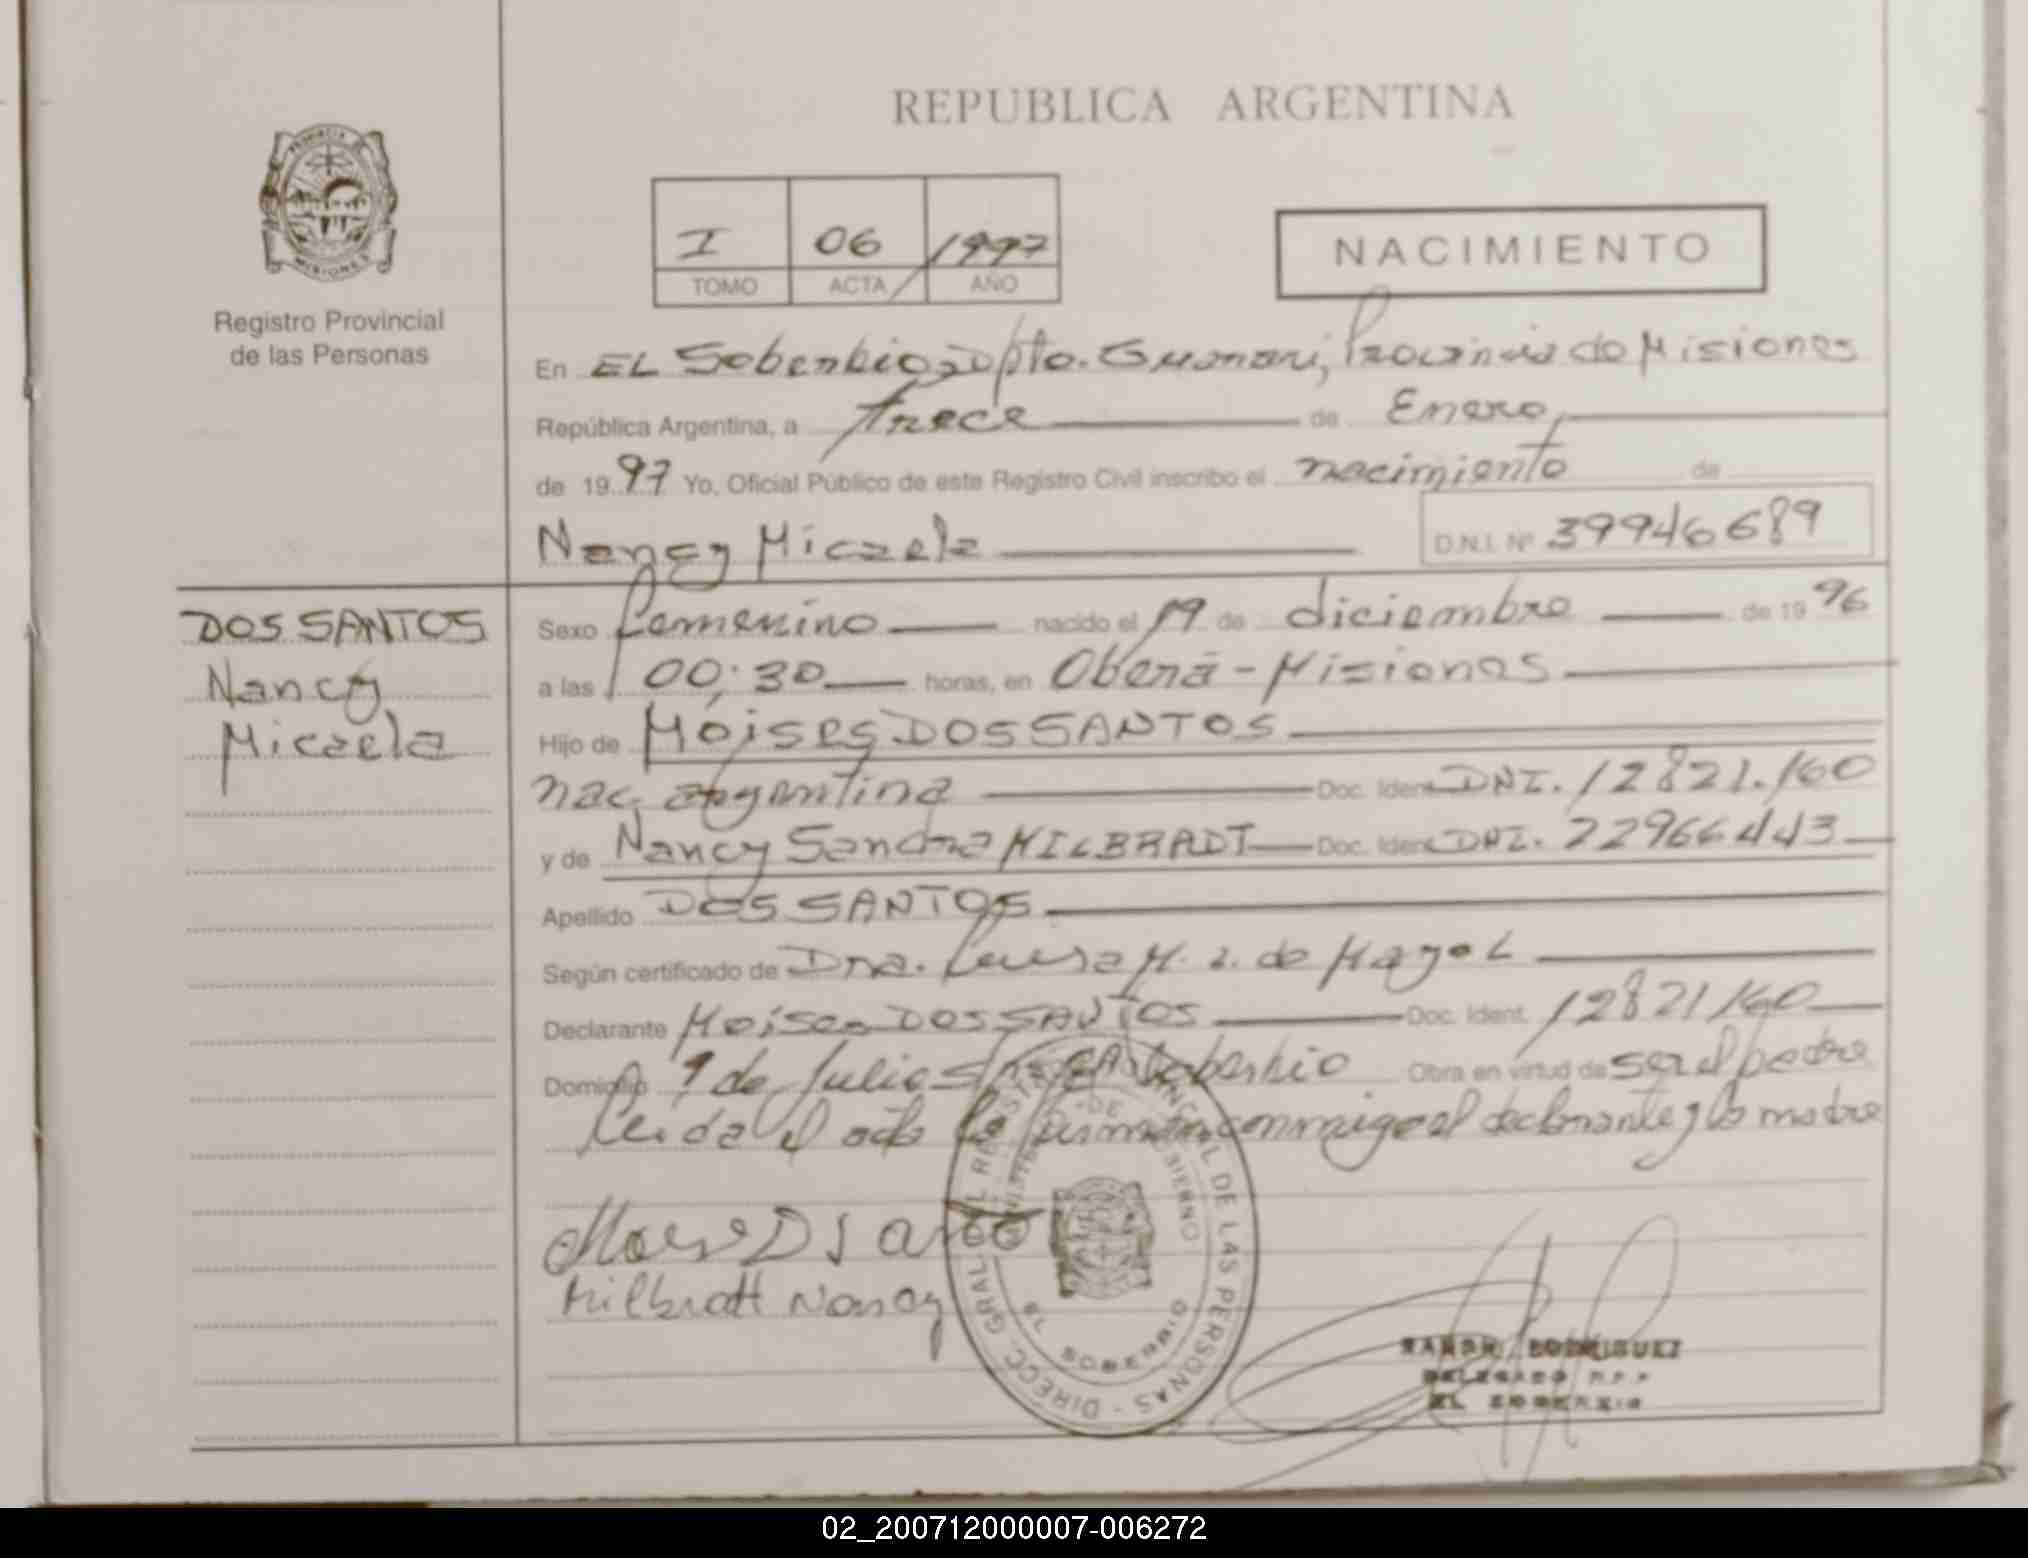 REPUBLICA ARGENTINA
PROVINCIA DE
MISIONES
Registro Provincial
de las Personas
I 06 / 1997
TOMO ACTA AÑO
NACIMIENTO
En EL Soberbio, Dpto. Guarani, Provincia de Misiones
República Argentina, a trece de Enero,
de 19 97 Yo, Oficial Público de este Registro Civil inscribo el nacimiento de
Nancy Micaela D.N.I. Nº 39946689
DOS SANTOS
Nancy
Micaela
Sexo femenino nacido el 19 de diciembre de 19 96
a las 00:30 horas, en Oberá - Misiones
Hijo de Moises DOS SANTOS
nac. argentina Doc. Ident. DNI. 12821.160
y de Nancy Sandra MILBRADT Doc. Ident. DNI. 22966443
Apellido DOS SANTOS
Según certificado de Dra. Luisa M. de Mayol
Declarante Moises DOS SANTOS Doc. Ident. 12821160
Domicilio 9 de Julio S/Nº El Soberbio Obra en virtud de ser el padre
Leida el acta la firman conmigo el declarante y la madre
Milbradt Nancy
DIRECC. GRAL. DEL REGISTRO PROVINCIAL DE LAS PERSONAS
MINISTERIO DE GOBIERNO
EL SOBERBIO
RAMON RODRIGUEZ
DELEGADO R.P.P.
EL SOBERBIO
02_200712000007-006272